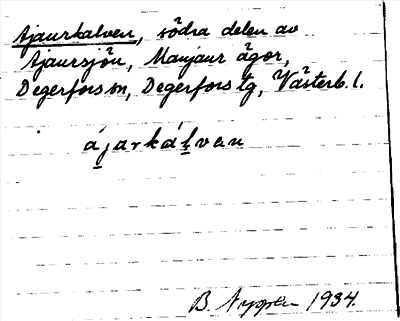 Ajaurkalven, södra delen av
Ajaursjön, Manjaur ägor,
Degerfors sn, Degerfors tg, Västerb. l.
ájarkálven
B. 1934.